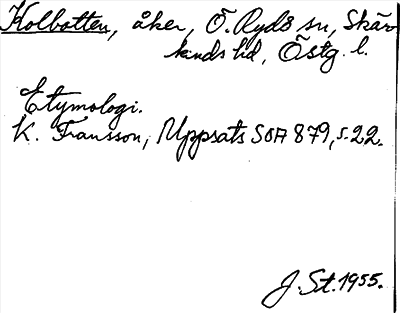 Kolbotten, åker, Ö. Ryds sn, Skär
kinds hd, Östg. l.
Etymologi.
K. Fransson, Uppsats SOA 879, s. 22.
J. St. 1955.